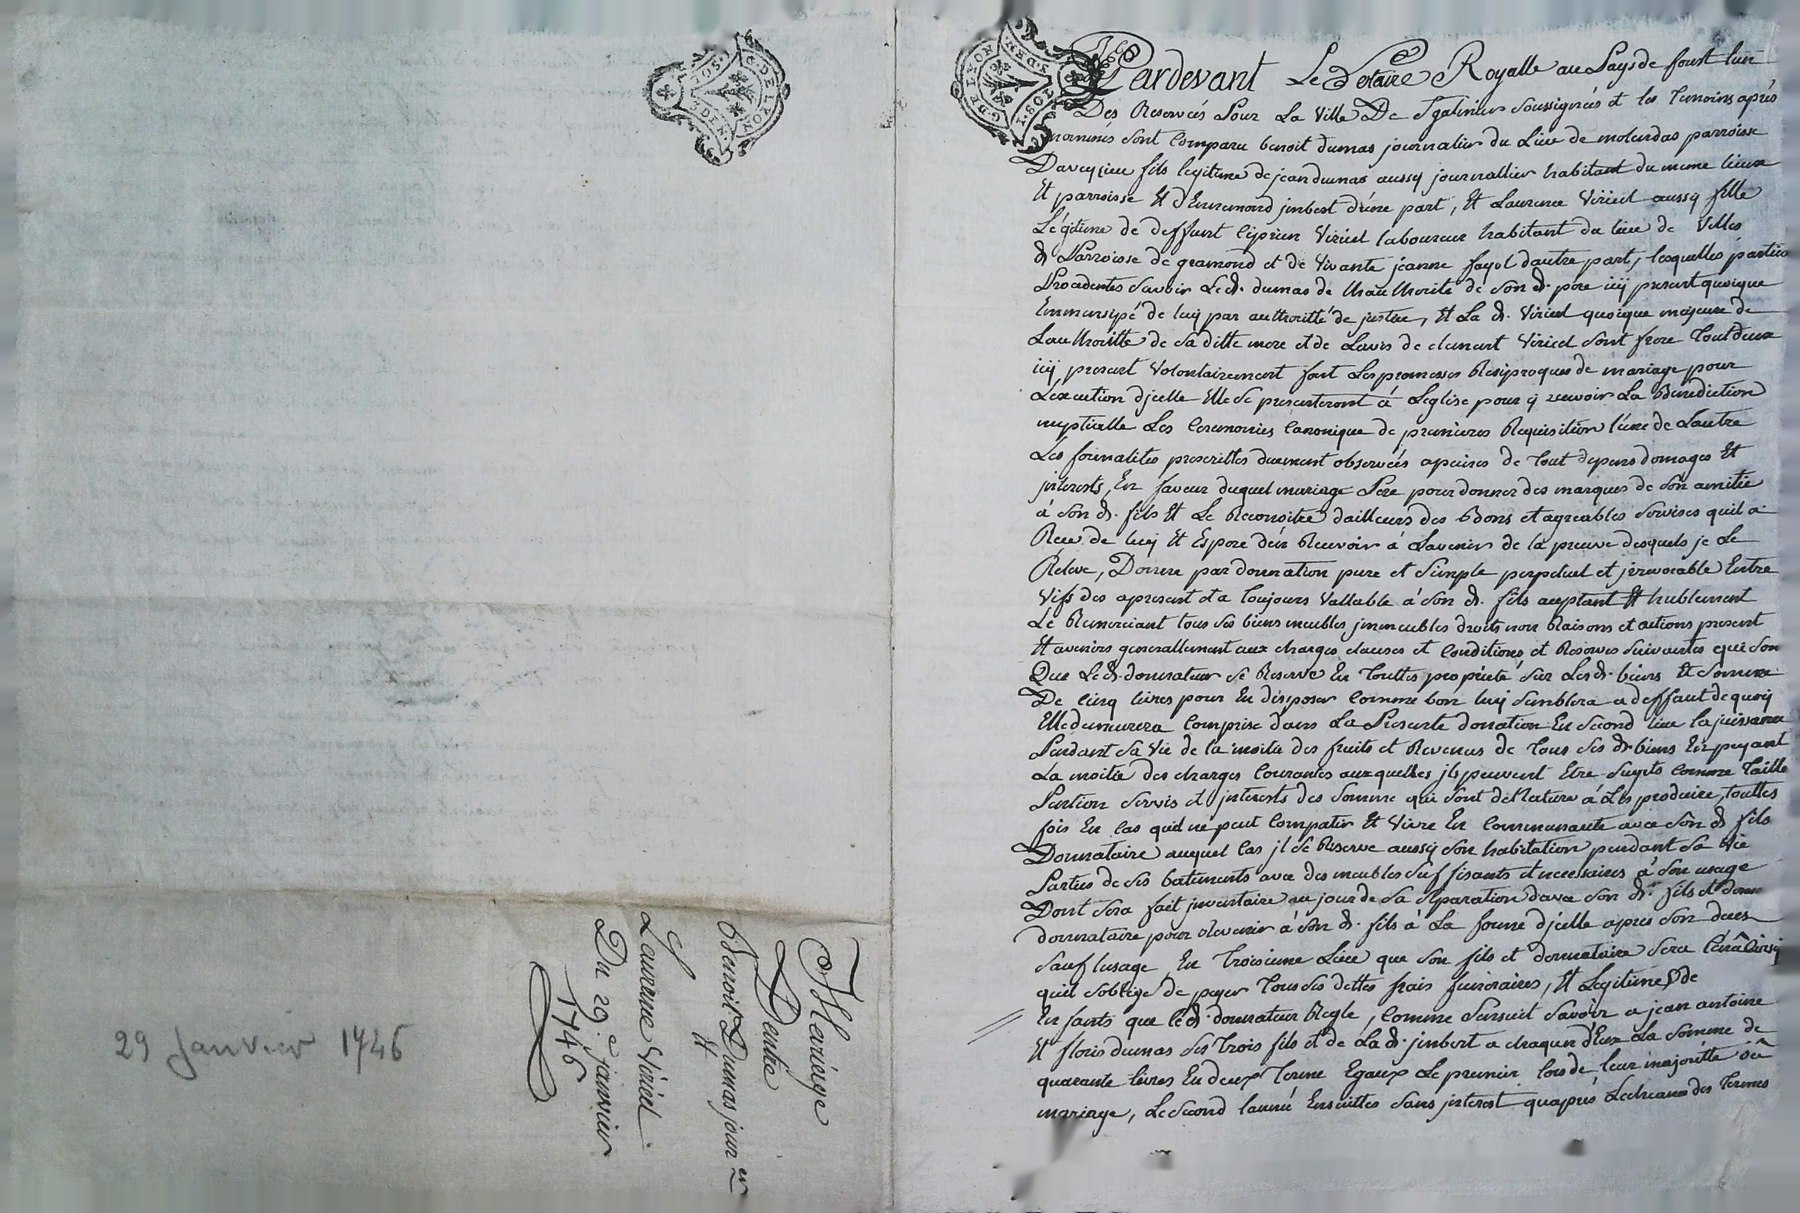 Mariage
Dentre
Benoit Dumas jour er
Et
Laurence Viricel
Du 29 e janvier
1746
29 Janvier 1746
G. DE LYON
Pardevant Le Notaire Royalle au Pays de foust lun
Des Reservés Pour La Ville De St galmier Soussignés et les Temoins aprés
nommés sont Comparu benoit dumas journalier du Lieu de
Daveyzieu fils legitime de jean dumas aussy journallier habitant du meme lieux
Et parroisse Et d'Ennemond jmbert d'une part, Et Laurence Viricel aussy fille
Légitime de deffunt Ciprien Viricel laboureur habitant du lieu de Villes
d. Parroisse de gramond et de Vivante jeanne fayol dautre part, lesquelles parties
Procedentes Savoir Le d. dumas de Lhauthorité de Son d. pere icy present quoique
Emmansipé de luy par authoritté de justice, Et La d. Viricel quoique majeure de
Lauthoritte de Sa ditte mere et de Lavis de clement Viricel Sont frere Tout deux
icy present Volontairement font Les promesses Resiproques de mariage pour
Lexecution djcelle Elle Se presenteront à Leglise pour y recevoir La Benediction
nuptialle Les Ceremonies Canonique de premieres Requisition l'une de Lautre
Les formalites prescrittes duement observeés apeines de Tout depens domages Et
jnterests, En faveur duquel mariage Pere pour donner des marques de Son amitie
à Son d. fils Et Le Reconoitre dailleurs des Bons et agreables Services quil a
Reçu de luy Et Espere d'en Recevoir à Lavenir de la preuve desquels je Le
Releve, Donne par donnation pure et Simple perpetuel et jrrevocable Entre
Vifs des apresent et a Toujours Vallable à Son d. fils aceptant Et humblement
Le Remerciant tous Ses biens meubles jmmeubles droits nom Raisons et actions present
Et avenirs generallement aux charges clauses et Conditions et Reserves Suivantes qui Son
Que Le d. donnateur Se Reserve En Toutte propriété Sur Les d. biens Et Somme
De Cinq livres pour En disposer Comme bon luy Semblera a deffaut de quoy
Elle demeurera Comprise dans La Presente donation En Second lieu la juissance
Pendant Sa Vie de la moitie des fruits et Revenus de Tous Ses d. biens En payant
La moitie des charges Courantes auxquelles jls peuvent Etre Sujets Comme Taille
Pention Servis et jnterests des Somme qui Sont de Nature à Les produire, touttes
fois En Cas quil ne peut Compatir Et Vivre En Communauté avec Son d. fils
Donnataire auquel Cas jl Se Reserve aussy Son habitation pendant Sa Vie
Parties de Ses batiments avec des meubles Suffisants et necessaires à Son usage
Dont Sera fait jnventaire au jour de Sa Separation davec Son d. fils et donn
donnataire pour revenir à Son d. fils à La forme djcelle apres Son deces
Sauf lusage, En Troisieme Lieu que Son fils et donnataire Sera Tenû ainsy
quil Soblige de payer Tous Ses dettes frais funeraires, Et Legitimes de
Enfants que le d. donnateur Regle, Comme Sensuit Savoir a jean antoine
Et floris dumas Ses Trois fils et de La d. jmbert a chaqun d'Eux La Somme de
quarante livres En deux Terme Egaux Le premier lors de leur majoritté où
mariage, Le Second lannée Ensuittes Sans jnterest quaprés Lecheance des Termes